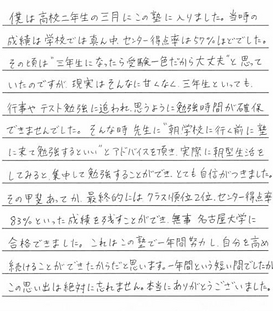 僕は高校二年生の三月にこの塾に入りました。当時の
成績は学校では真ん中、センター得点率は57%ほどでした。
その頃は"三年生になったら受験一色だから大丈夫"と思って
いたのですが、現実はそんなに甘くなく、三年生といっても、
行事やテスト勉強に追われ、思うように勉強時間が確保
できませんでした。そんな時先生に"朝学校に行く前に塾
に来て勉強するといい"とアドバイスを頂き、実際に朝型生活を
してみると、集中して勉強することができ、とても自信がつきました。
その甲斐あってか、最終的にはクラス順位2位、センター得点率
83%といった成績を残すことができ、無事名古屋大学に
合格できました。これはこの塾で一年間努力し、自分を高め
続けることができたからだと思います。一年間という短い間でしたが
この思い出は絶対に忘れません。本当にありがとうございました。